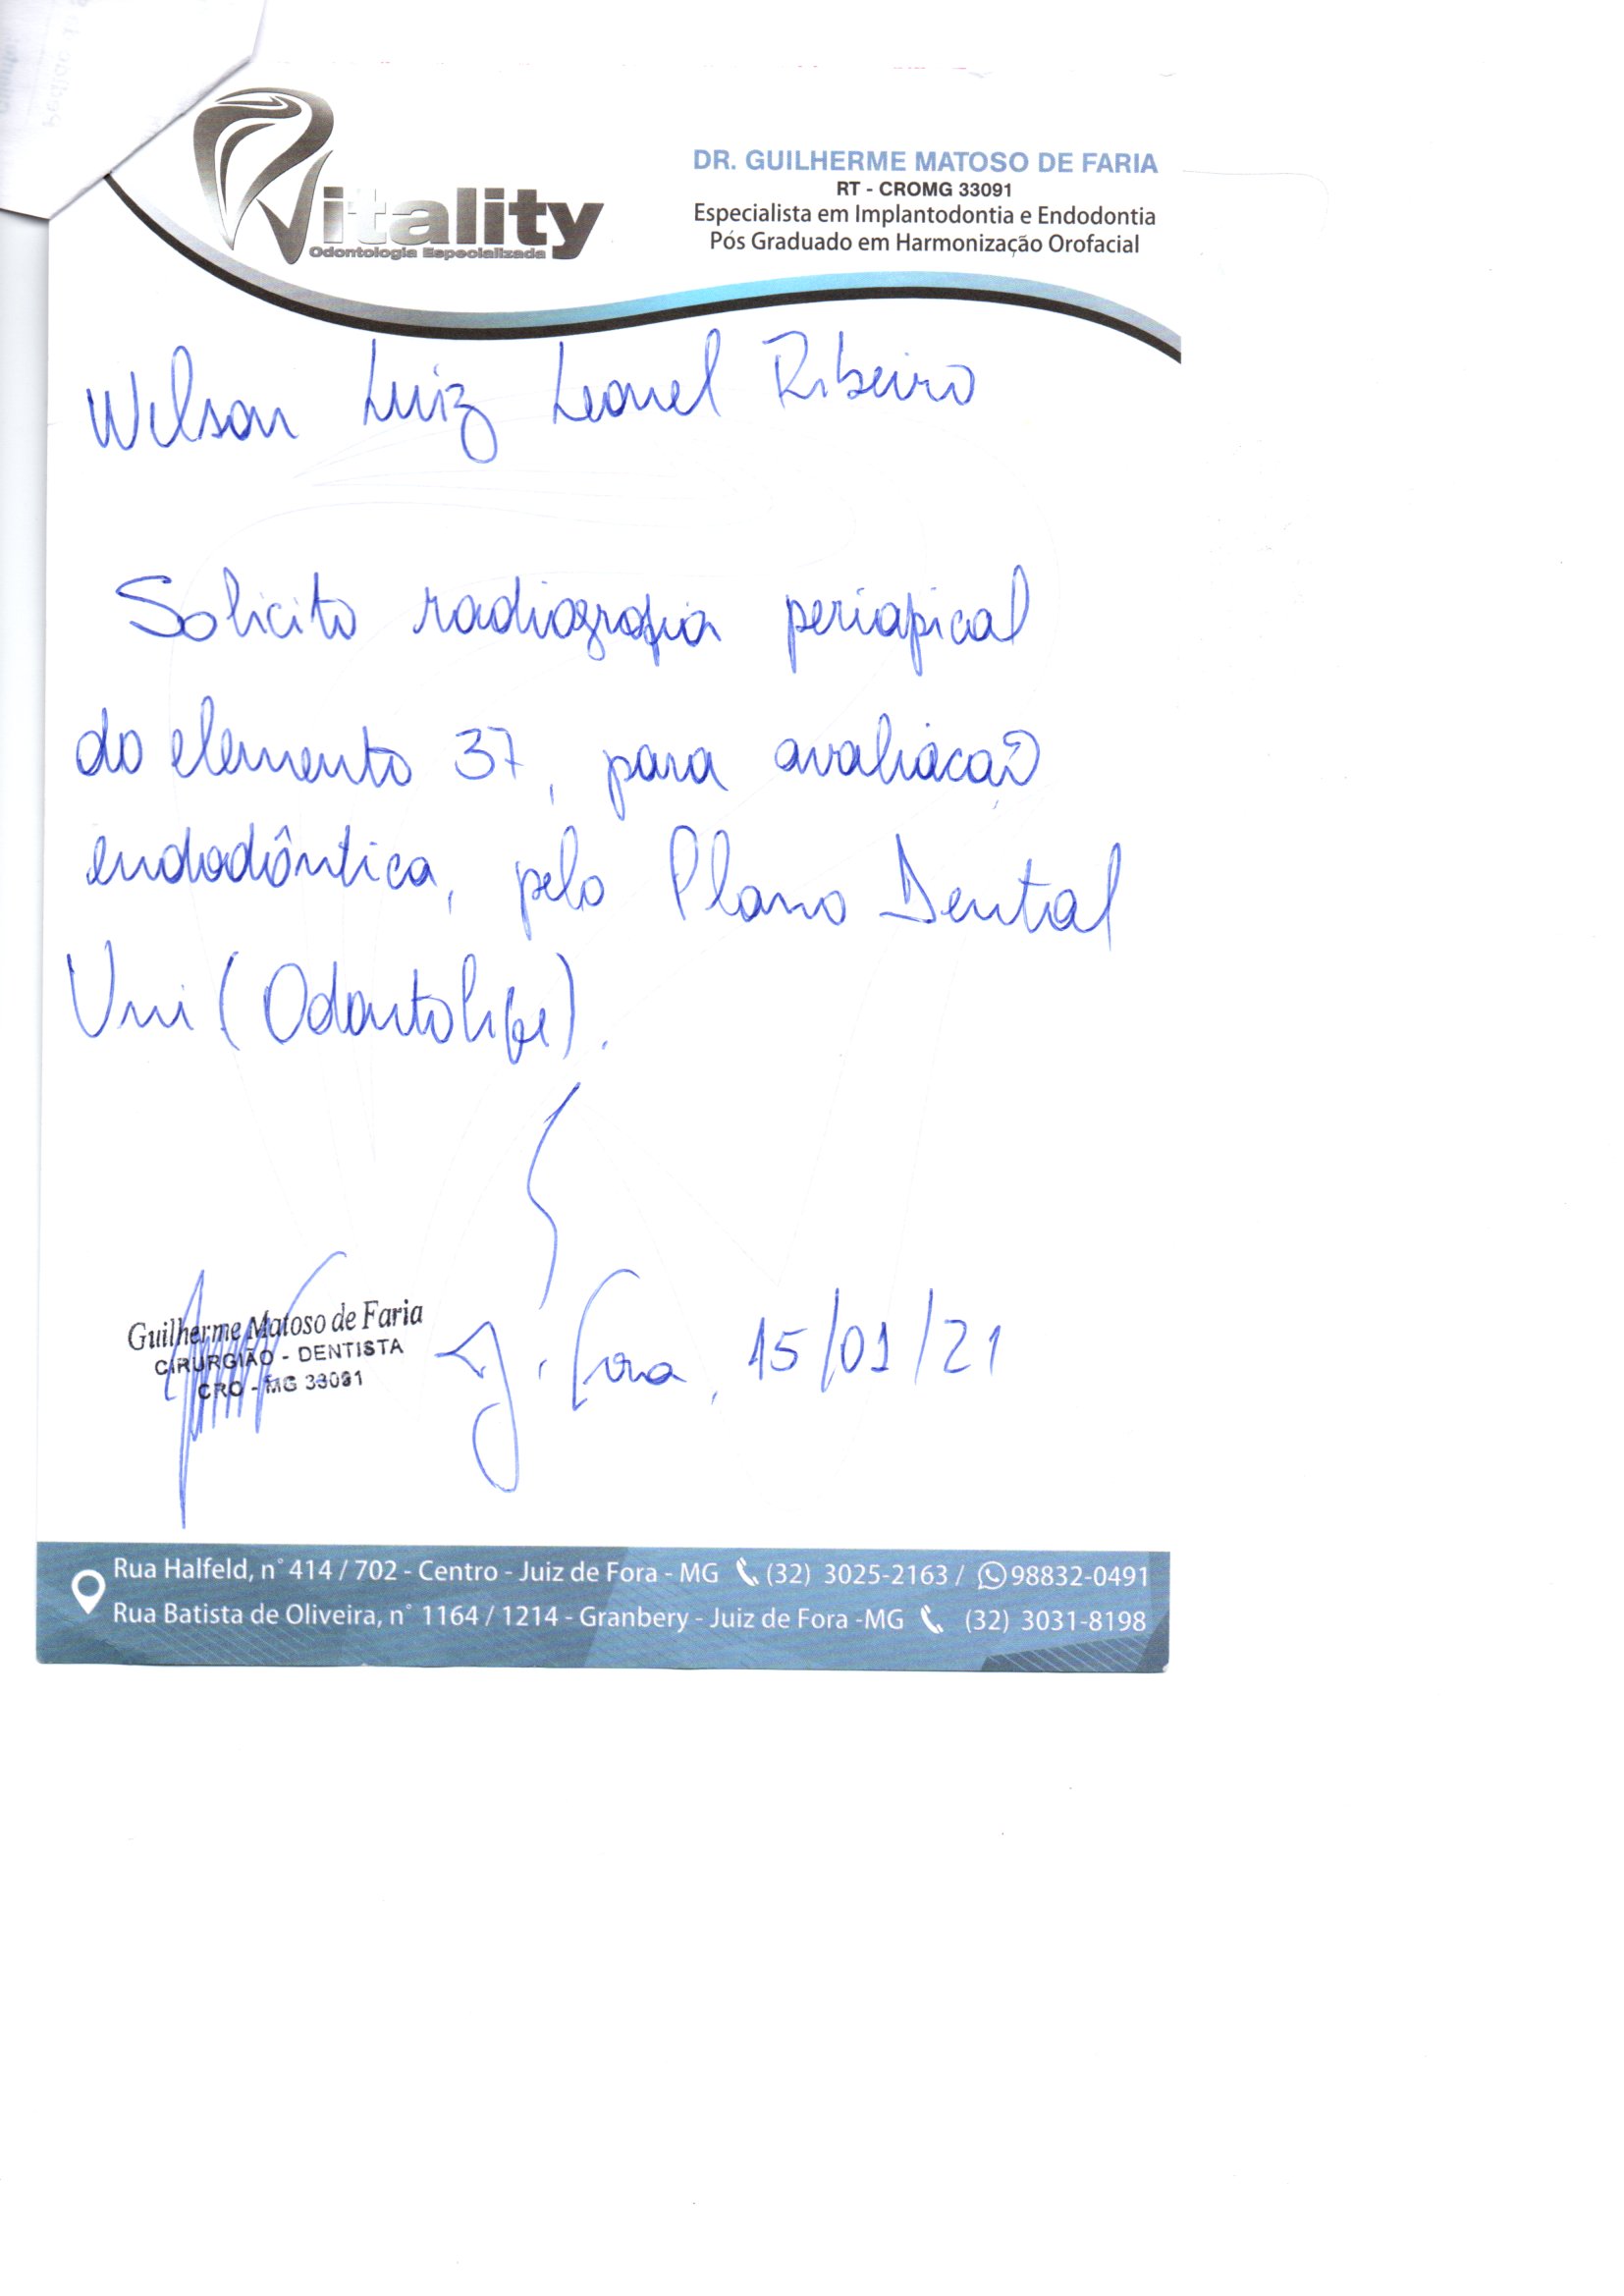 Vitality
Odontologia Especializada
DR. GUILHERME MATOSO DE FARIA
RT - CROMG 33091
Especialista em Implantodontia e Endodontia
Pós Graduado em Harmonização Orofacial
Wilson Luiz Leonel Ribeiro
Solicito radiografia periapical
do elemento 37, para avaliação
endodôntica, pelo Plano Dental
Uni (Odontolife).
Guilherme Matoso de Faria
CIRURGIÃO - DENTISTA
CRO - MG 33091
J. Fora, 15/01/21
Rua Halfeld, n° 414 / 702 - Centro - Juiz de Fora - MG (32) 3025-2163 / 98832-0491
Rua Batista de Oliveira, n° 1164 / 1214 - Granbery - Juiz de Fora -MG (32) 3031-8198